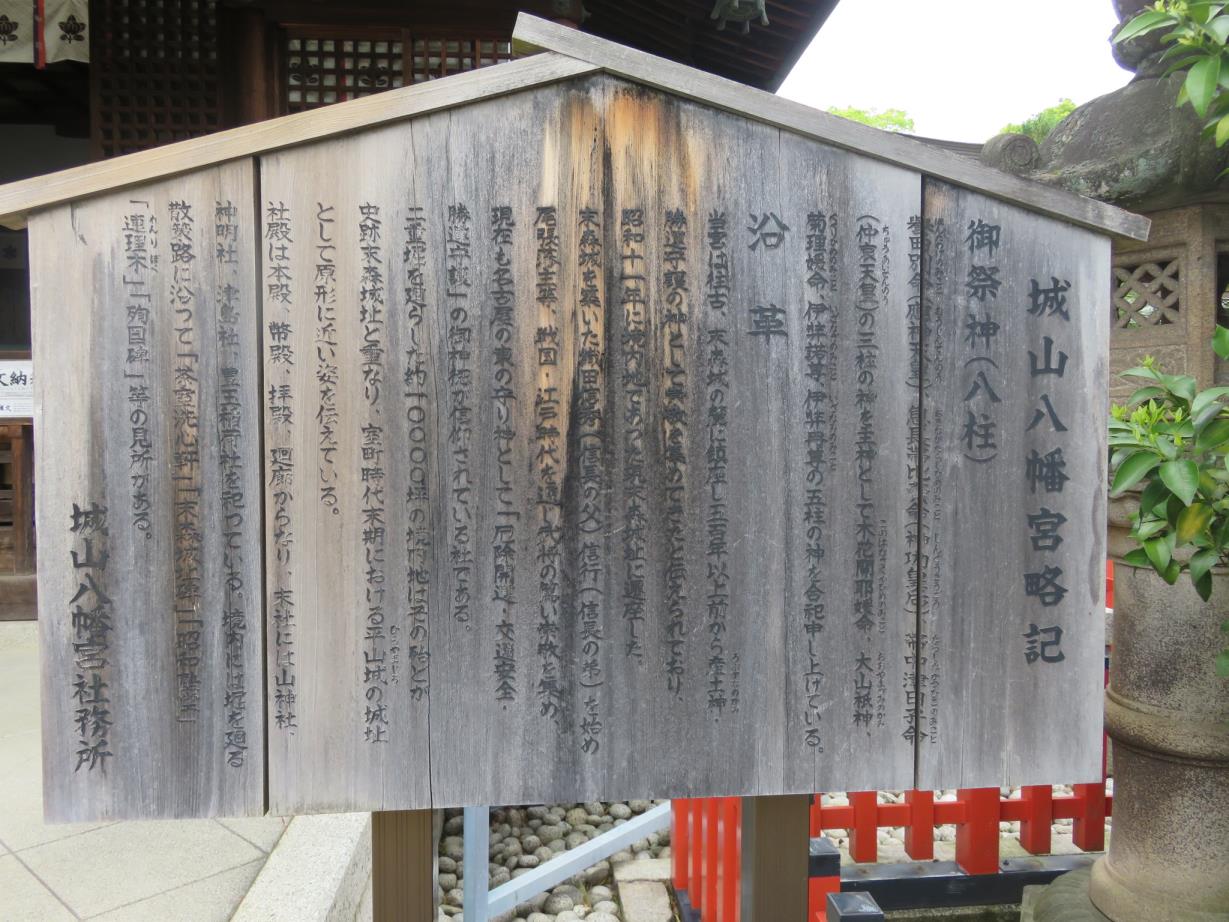 城山八幡宮略記
御祭神(八柱)
誉田別命(応神天皇) 息長帯比売命(神功皇后) 帯中津日子命
(仲哀天皇)の三柱の神を主神として木花開耶媛命、大山祇神、
菊理媛命、伊弉諾尊、伊弉冉尊の五柱の神を合祀申し上げている。
沿革
当宮は往古、末森城の麓に鎮座し五百年以上前から産土神・
勝運守護の神として崇敬を集めてきたと伝えられており、
昭和十一年に境内地であった現末森城址に遷座した。
末森城を築いた織田信秀(信長の父)信行(信長の弟)を始め
尾張藩主等、戦国・江戸時代を通じ武将の篤い崇敬を集め、
現在も名古屋の東の守り神として「厄除開運・交通安全・
勝運守護」の御神徳が信仰されている社である。
二重堀を廻らした約一〇〇〇〇坪の境内地はその殆どが
史跡末森城址と重なり、室町時代末期における平山城の城址
として原形に近い姿を伝えている。
社殿は本殿、幣殿、拝殿、廻廊からなり、末社には山神社、
神明社、津島社、豊玉稲荷社を祀っている。境内には堀を廻る
散策路に沿って「茶室洗心軒」「末森城址碑」「昭和塾堂」
「連理木」「殉国碑」等の見所がある。
城山八幡宮社務所